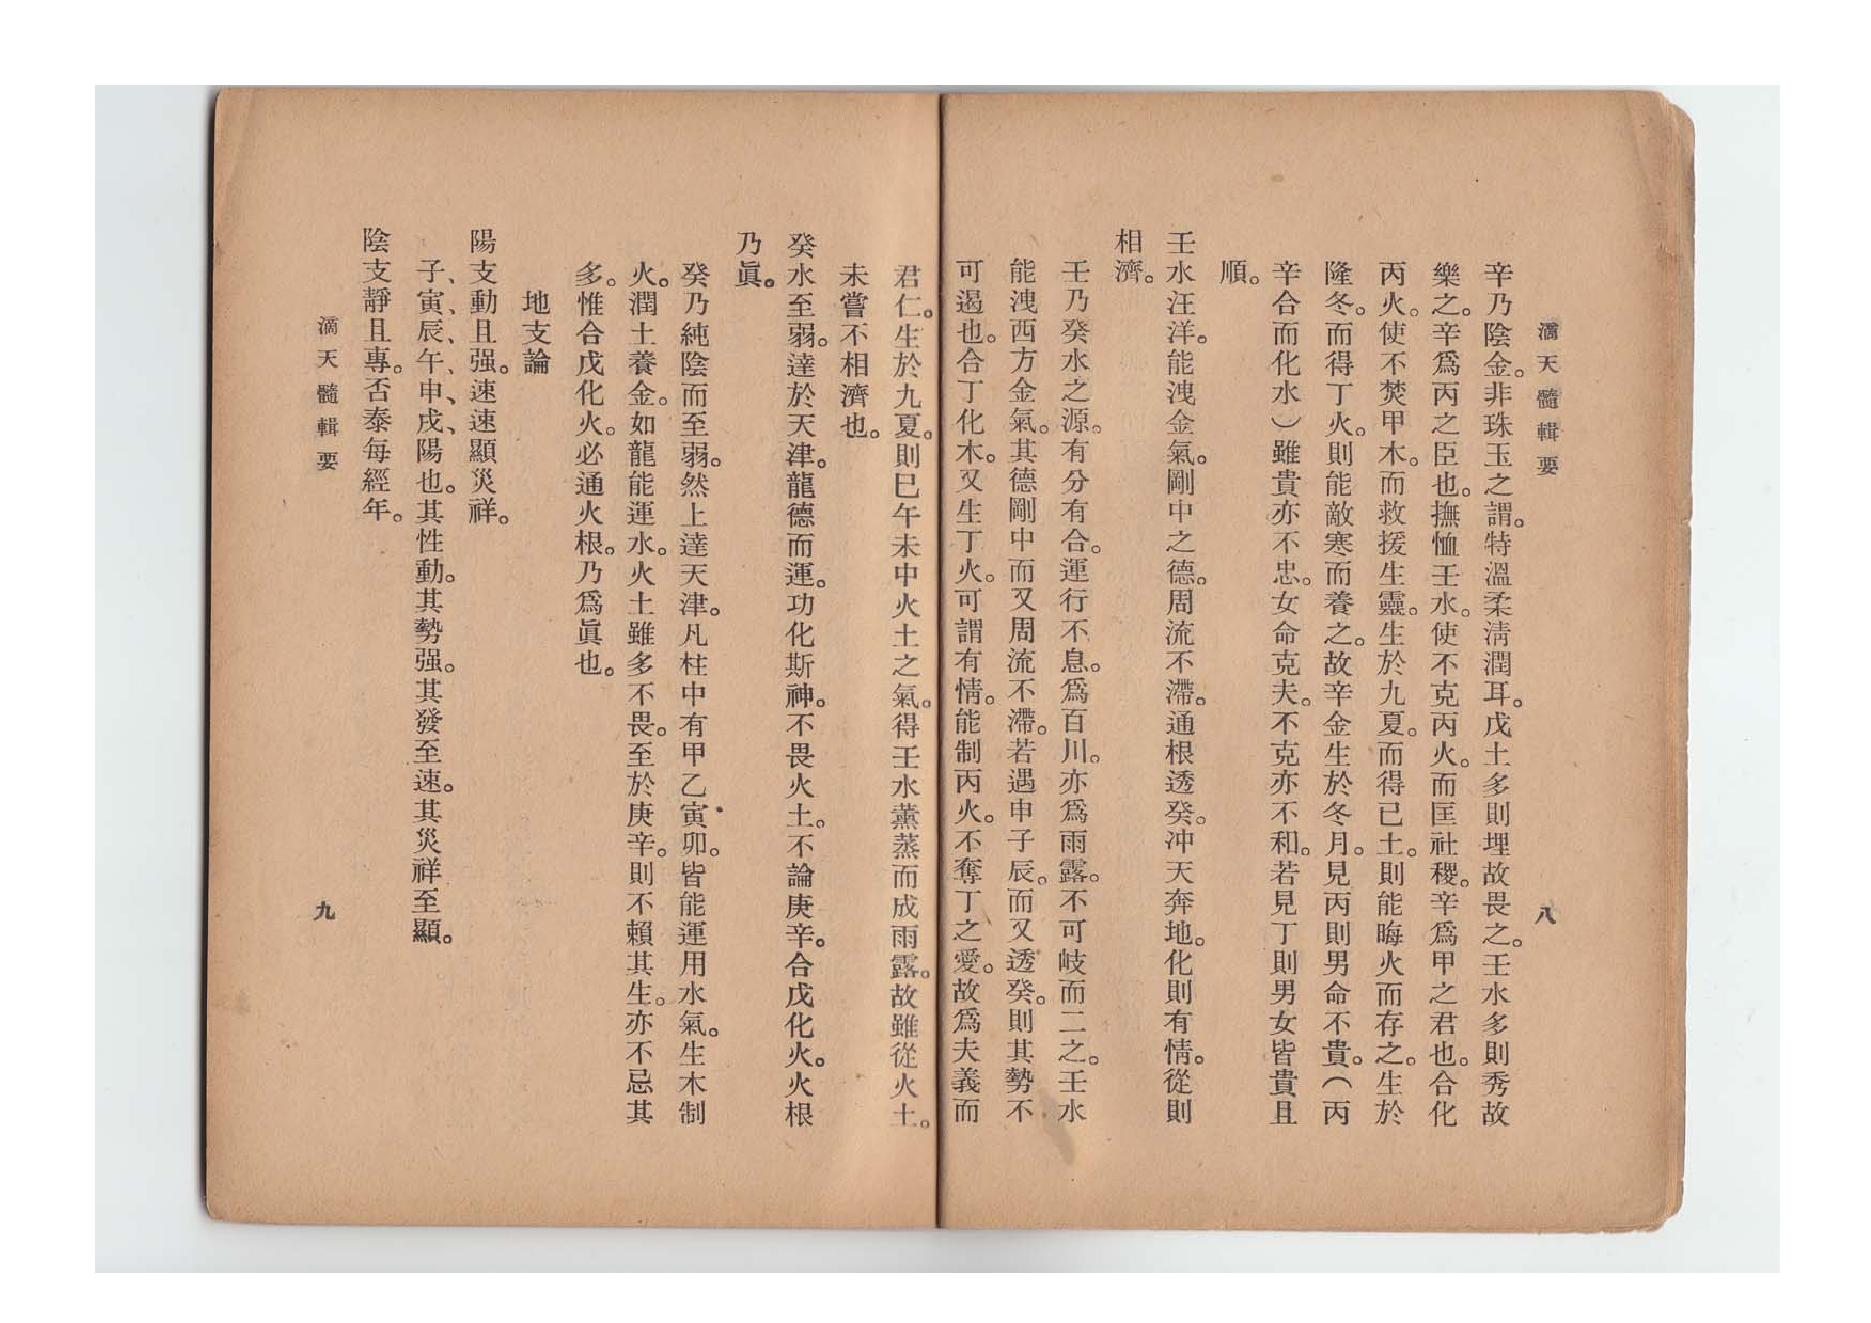 滴天髓輯要
八
辛乃陰金。非珠玉之謂。特溫柔淸潤耳。戊土多則埋故畏之。壬水多則秀故
樂之。辛爲丙之臣也。撫恤壬水。使不克丙火。而匡社稷。辛爲甲之君也。合化
丙火。使不焚甲木。而救援生靈。生於九夏。而得已土。則能晦火而存之。生於
隆冬。而得丁火。則能敵寒而養之。故辛金生於冬月。見丙則男命不貴。(丙
辛合而化水)雖貴亦不忠。女命克夫。不克亦不和。若見丁則男女皆貴且
順。
壬水汪洋。能洩金氣。剛中之德。周流不滯。通根透癸。冲天奔地。化則有情。從則
相濟。
壬乃癸水之源。有分有合。運行不息。爲百川。亦爲雨露。不可岐而二之。壬水
能洩西方金氣。其德剛中而又周流不滯。若遇申子辰。而又透癸。則其勢不
可遏也。合丁化木。又生丁火。可謂有情。能制丙火。不奪丁之愛。故爲夫義而
君仁。生於九夏。則巳午未中火土之氣。得壬水薰蒸而成雨露。故雖從火土。
未嘗不相濟也。
癸水至弱。達於天津。龍德而運。功化斯神。不畏火土。不論庚辛。合戊化火。火根
乃眞。
癸乃純陰而至弱。然上達天津。凡柱中有甲乙寅卯。皆能運用水氣。生木制
火。潤土養金。如龍能運水。火土雖多不畏。至於庚辛。則不賴其生。亦不忌其
多。惟合戊化火。必通火根。乃爲眞也。
地支論
陽支動且强。速速顯災祥。
子、寅、辰、午、申、戌、陽也。其性動。其勢强。其發至速。其災祥至顯。
陰支靜且專。否泰每經年。
滴天髓輯要
九